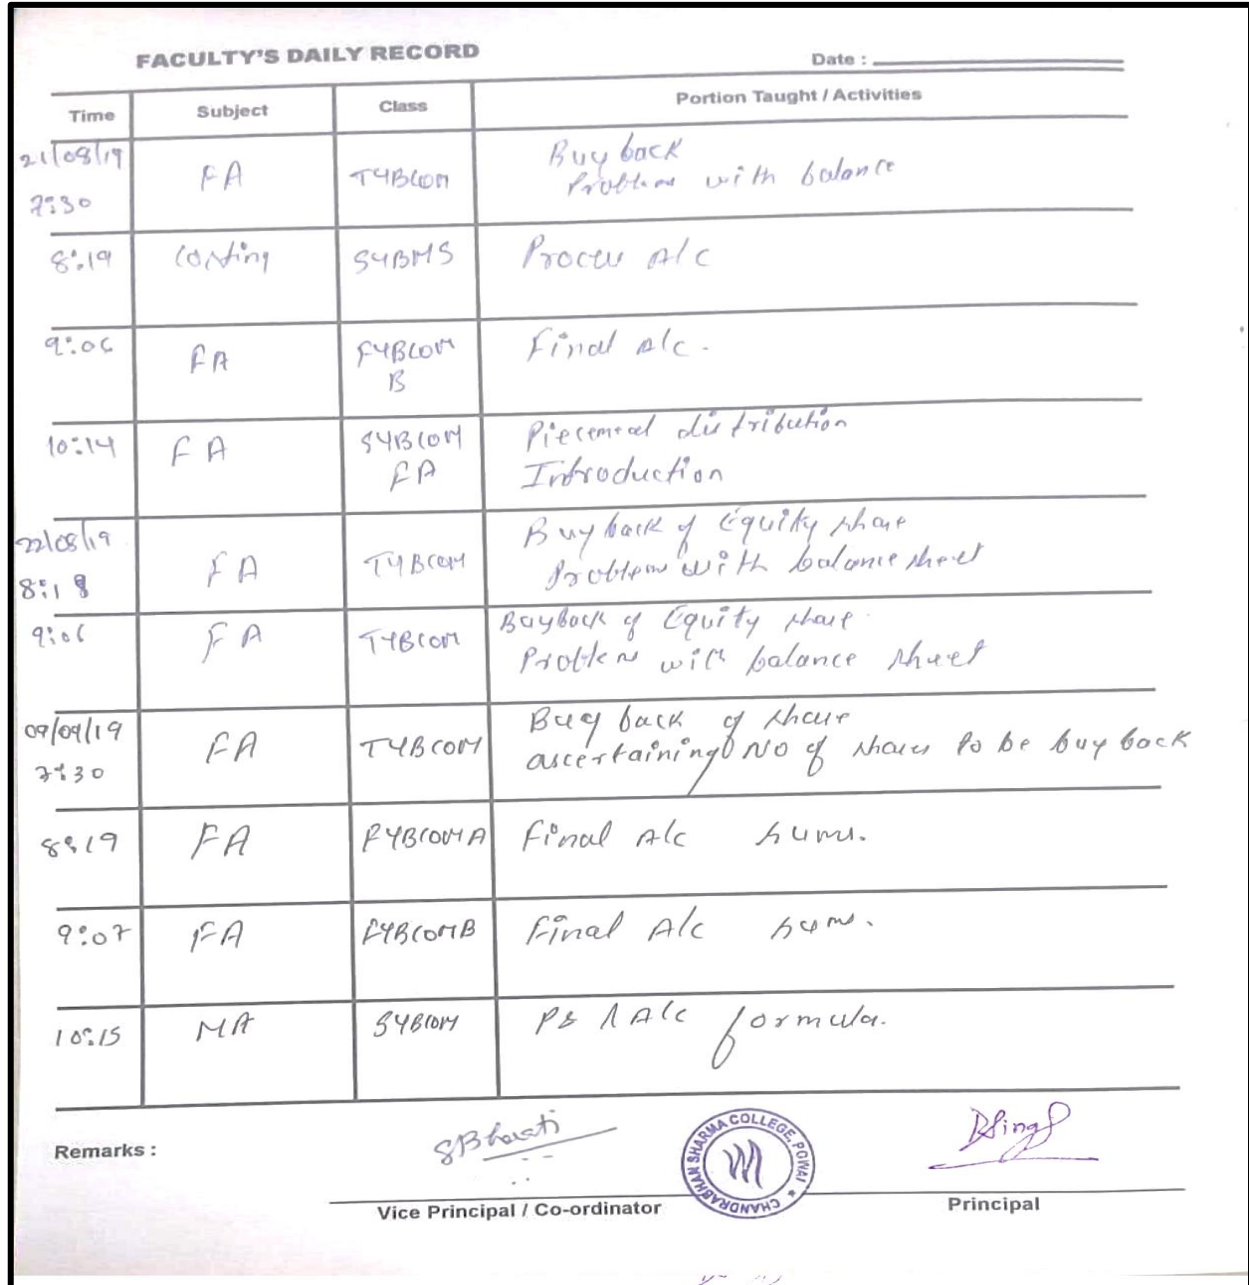 FACULTY'S DAILY RECORD
Date :
Time Subject Class Portion Taught / Activities
21/08/19
7:30 FA TYBCOM Buy back
Problem with balance
8:19 Costing SYBMS Process A/c
9:06 FA FYBCOM
B Final A/c.
10:14 FA SYBCOM
FA Piecemeal distribution
Introduction
22/08/19
8:18 FA TYBCOM Buy back of Equity share
Problem with balance sheet
9:06 FA TYBCOM Buyback of Equity share
Problem with balance sheet
09/09/19
7:30 FA TYBCOM Buy back of share
ascertaining No of shares to be buy back
8:19 FA FYBCOMA Final A/c sums.
9:07 FA FYBCOMB Final A/c sums.
10:15 MA SYBCOM P& l A/c formula.
Remarks :
SBharati
BSingh
CHANDRABHAN SHARMA COLLEGE, POWAI
Vice Principal / Co-ordinator
Principal